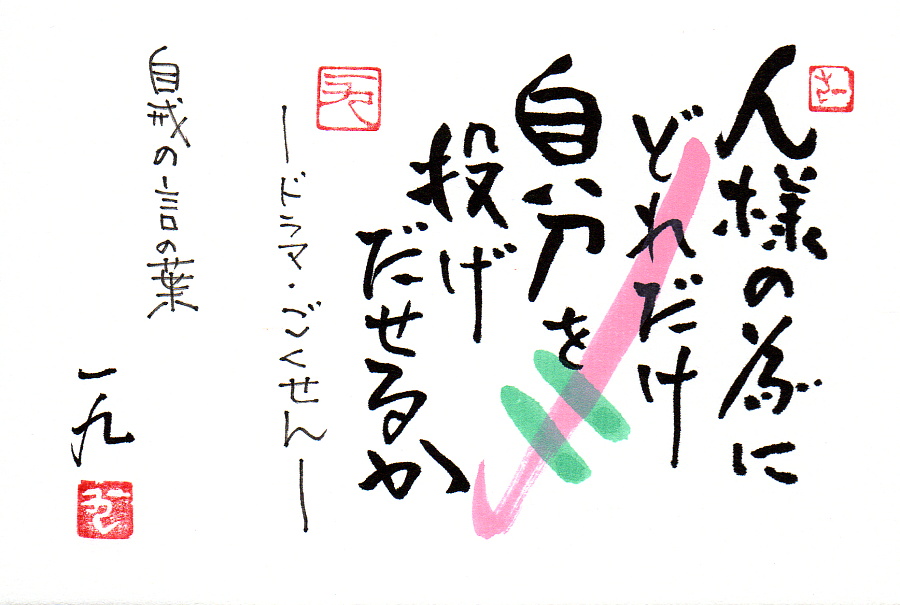 人様の為に
どれだけ
自分を
投げ
だせるか
—ドラマ・ごくせん—
自戒の言の葉
一九